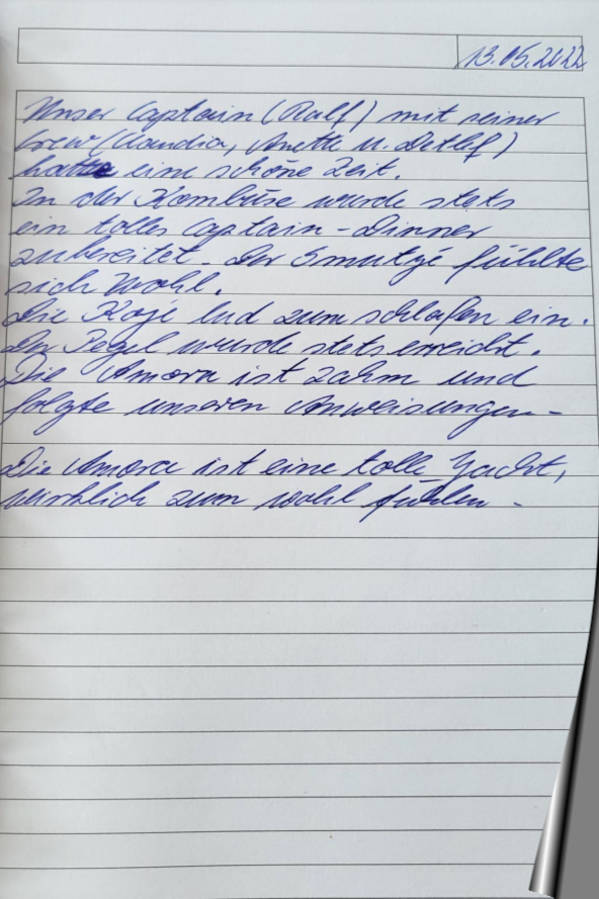 13.05.2022
Unser Captain (Ralf) mit seiner
Crew (Claudia, Anette u. Detlef)
hatte eine schöne Zeit.
In der Kombüse wurde stets
ein tolles Captain-Dinner
zubereitet. Der Smutje fühlte
sich Wohl.
Die Koje lud zum schlafen ein.
Der Pegel wurde stets erreicht.
Die Amora ist zahm und
folgte unseren Anweisungen.
Die Amora ist eine tolle Yacht,
wirklich zum wohl fühlen.